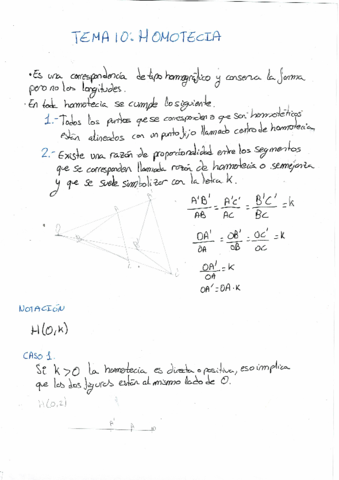 TEMA 10: HOMOTECIA
• Es una correspondencia de tipo homográfico y conserva la forma
pero no las longitudes.
• En toda homotecia se cumple lo siguiente.
1.- Todos los puntos que se corresponden o que son homotéticos
están alineados con un punto fijo llamado centro de homotecia
2.- Existe una razón de proporcionalidad entre los segmentos
que se corresponden llamada razón de homotecia o semejanza
y que se suele simbolizar con la letra k.
A'B'/AB = A'C'/AC = B'C'/BC = k
OA'/OA = OB'/OB = OC'/OC = k
OA'/OA = k
OA' = OA · k
NOTACIÓN
H(O,k)
CASO 1.
Si k > 0 la homotecia es directa o positiva, eso implica
que las dos figuras están al mismo lado de O.
H(O,2)